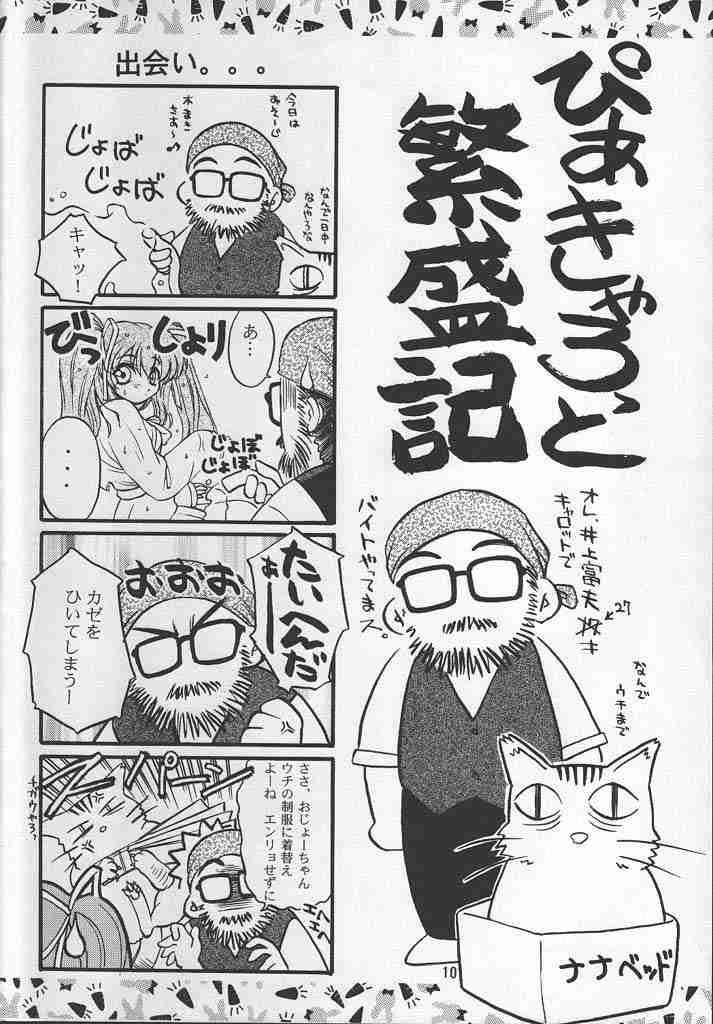 ぴあきゃろっと
繁盛記
オレ、井上富夫
27
キャロットで
バイトやってまス。
なんで
ウチまで
ナナベッド
10
出会い。。。
今日は
木まき
さあ〜♪
じょば
じょば
なんで一日中
なんやろな
キャッ！
びっ
じょり
あ…
じょぼ
じょぼ
・・・
たいへんだ
ぁー
おおお
カゼを
ひいてしまうー
スパーン
ささ、おじょーちゃん
ウチの制服に着替え
よーね エンリョせずに
エヘ
エヘ
チガウやろ？